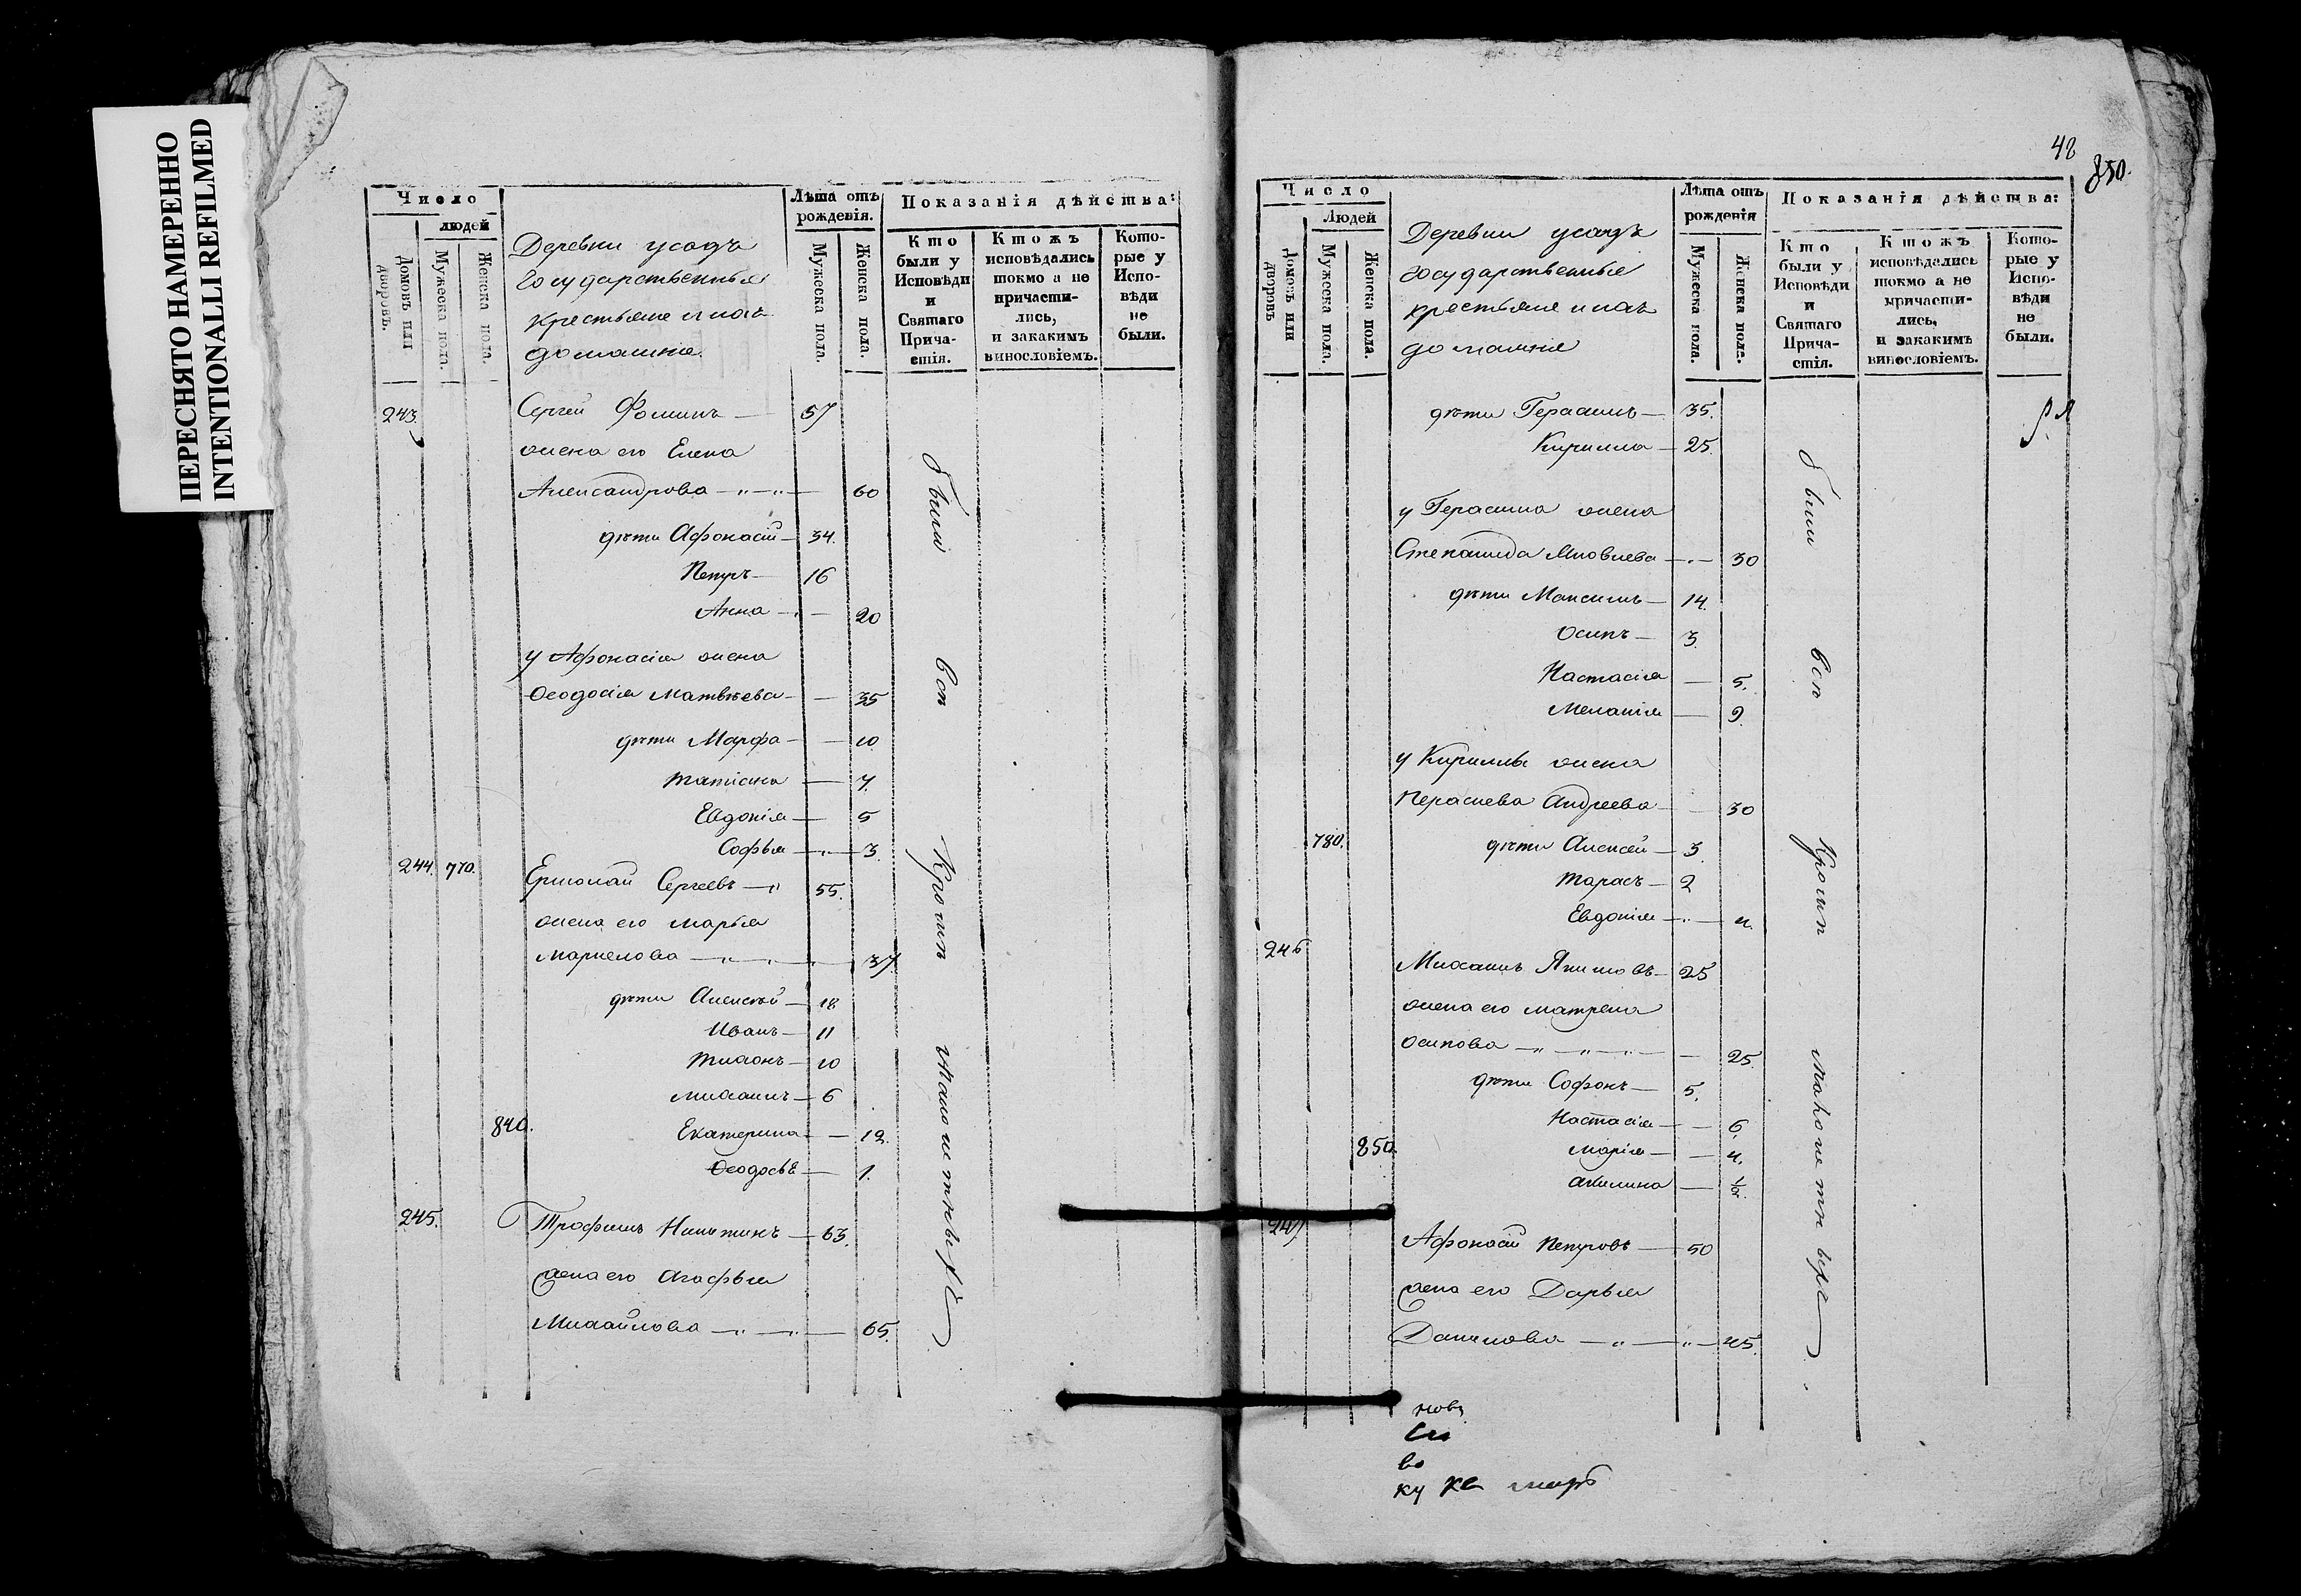 ПЕРЕСНЯТО НАМЕРЕННО
INTENTIONALLI REFILMED
Число
людей
Домовъ или дворовъ.
Мужеска пола.
Женска пола.
Деревни усадъ
государственныя
крестьяне и ихъ
домашніе.
Лѣта отъ рожденія.
Мужеска пола.
Женска пола.
Показанія дѣйства:
Кто были у Исповѣди и Святаго Причастія.
Ктожъ исповѣдались токмо а не причастились, и закакимъ винословіемъ.
Которые у Исповѣди не были.
243. Сергей Фоминъ — 57
жена его Елена
Александрова — 60
дѣти Афонасій — 34.
Петръ — 16
Анна — 20
у Афонасія жена
Ѳеодосія Матвѣева — 35
дѣти Марфа — 10
Татіяна — 7.
Евдокія — 5
Софья — 3.
244. 770. Ермолай Сергеевъ — 55.
жена его Марья
Маркелова — 37
дѣти Алексѣй — 18
Иванъ — 11
Тихонъ — 10
Михаилъ — 6
840. Екатерина — 12.
Ѳеодосья — 1.
245. Трофимъ Никитинъ — 63.
жена его Агафья
Михайлова — 65.
были всѣ кромѣ малолѣтныхъ
48
850.
Число
Людей
Домовъ или дворовъ
Мужеска пола.
Женска пола.
Деревни усадъ
государственные
крестьяне и ихъ
домашніе
Лѣта отъ рожденія
Мужеска пола.
Женска пола.
Показанія дѣйства:
Кто были у Исповѣди и Святаго Причастія.
Ктожъ исповѣдались токмо а не причастились, и закакимъ винословіемъ.
Которые у Исповѣди не были.
дѣти Герасимъ — 35.
Кирилла — 25.
у Герасима жена
Степанида Яковлева — 30
дѣти Максимъ — 14.
Осипъ — 3.
Настасія — 5.
Меланія — 9.
у Кириллы жена
Парасковья Андреева — 30
780. дѣти Алексѣй — 3.
Тарасъ — 2
Евдокія — 4.
246 Михаилъ Якимовъ — 25
жена его Матрена
Осипова — 25.
дѣти Софонъ — 5.
Настасія — 6.
850. Марія — 4.
Акилина — ½.
247 Афонасій Петровъ — 50
жена его Дарья
Данилова — 45.
были всѣ кромѣ малолѣтныхъ